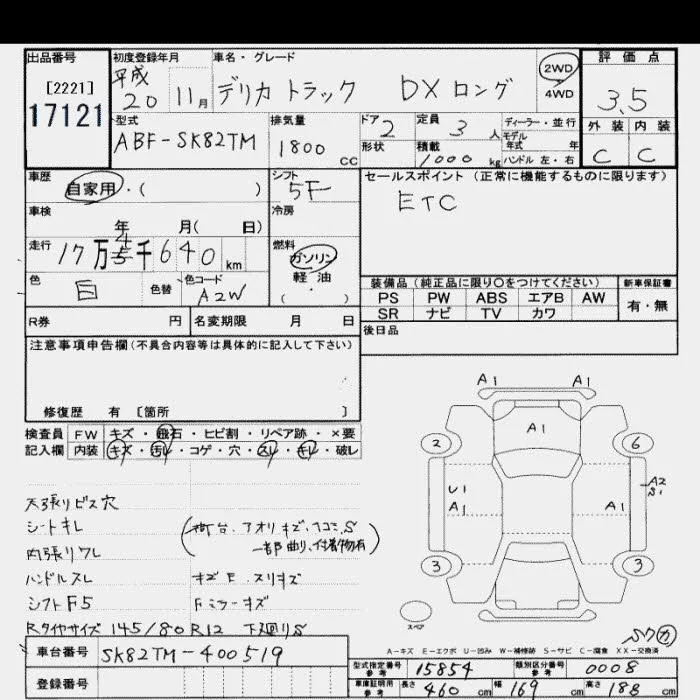 出品番号 初度登録年月 車名・グレード 評価点
[2221] 平成 2WD
17121 20 11月 デリカ トラック DX ロング 4WD 3.5
型式 排気量 ドア 2 定員 3人 ディーラー・並行 外装 内装
ABF-SK82TM 1800 CC 形状 積載 1000 kg モデル年式 年 ハンドル 左・右 C C
車歴 シフト セールスポイント (正常に機能するものに限ります)
自家用・( ) 5F ETC
車検 年 月( 日) 冷房
走行 17万4千640km 燃料 ガソリン
軽・油
( ・ )
色 白 色替 色コード A2W
装備品 (純正品に限り○をつけてください) 新車保証書
PS PW ABS エアB AW 有・無
SR ナビ TV カワ
R券 円 名変期限 月 日 後日品
注意事項申告欄 (不具合内容等は具体的に記入して下さい)
修復歴 有 [箇所 ]
検査員 FW キズ・飛石・ヒビ割・リペア跡・×要
記入欄 内装 キズ・汚レ・コゲ・穴・スレ・キレ・破レ
天張リビス穴
シートキレ (荷台、アオリキズ、凹コミ、S
内張リワレ 一部曲り、付着物有)
ハンドルスレ キズE、スリキズ
シフトF5 Fミラーキズ
Rタイヤサイズ 145/80R12 下廻りS
A1 A1
A1
2 6
U1 A2
A1 A1 S1
3 3
スペア
A-キズ E-エクボ U-凹み W-補修跡 S-サビ C-腐食 XX-交換済
車台番号 SK82TM-400519
登録番号
型式指定番号 参考 15854 類別区分番号 参考 0008
車庫証明用 参考 長さ 460cm 幅 169cm 高さ 188cm